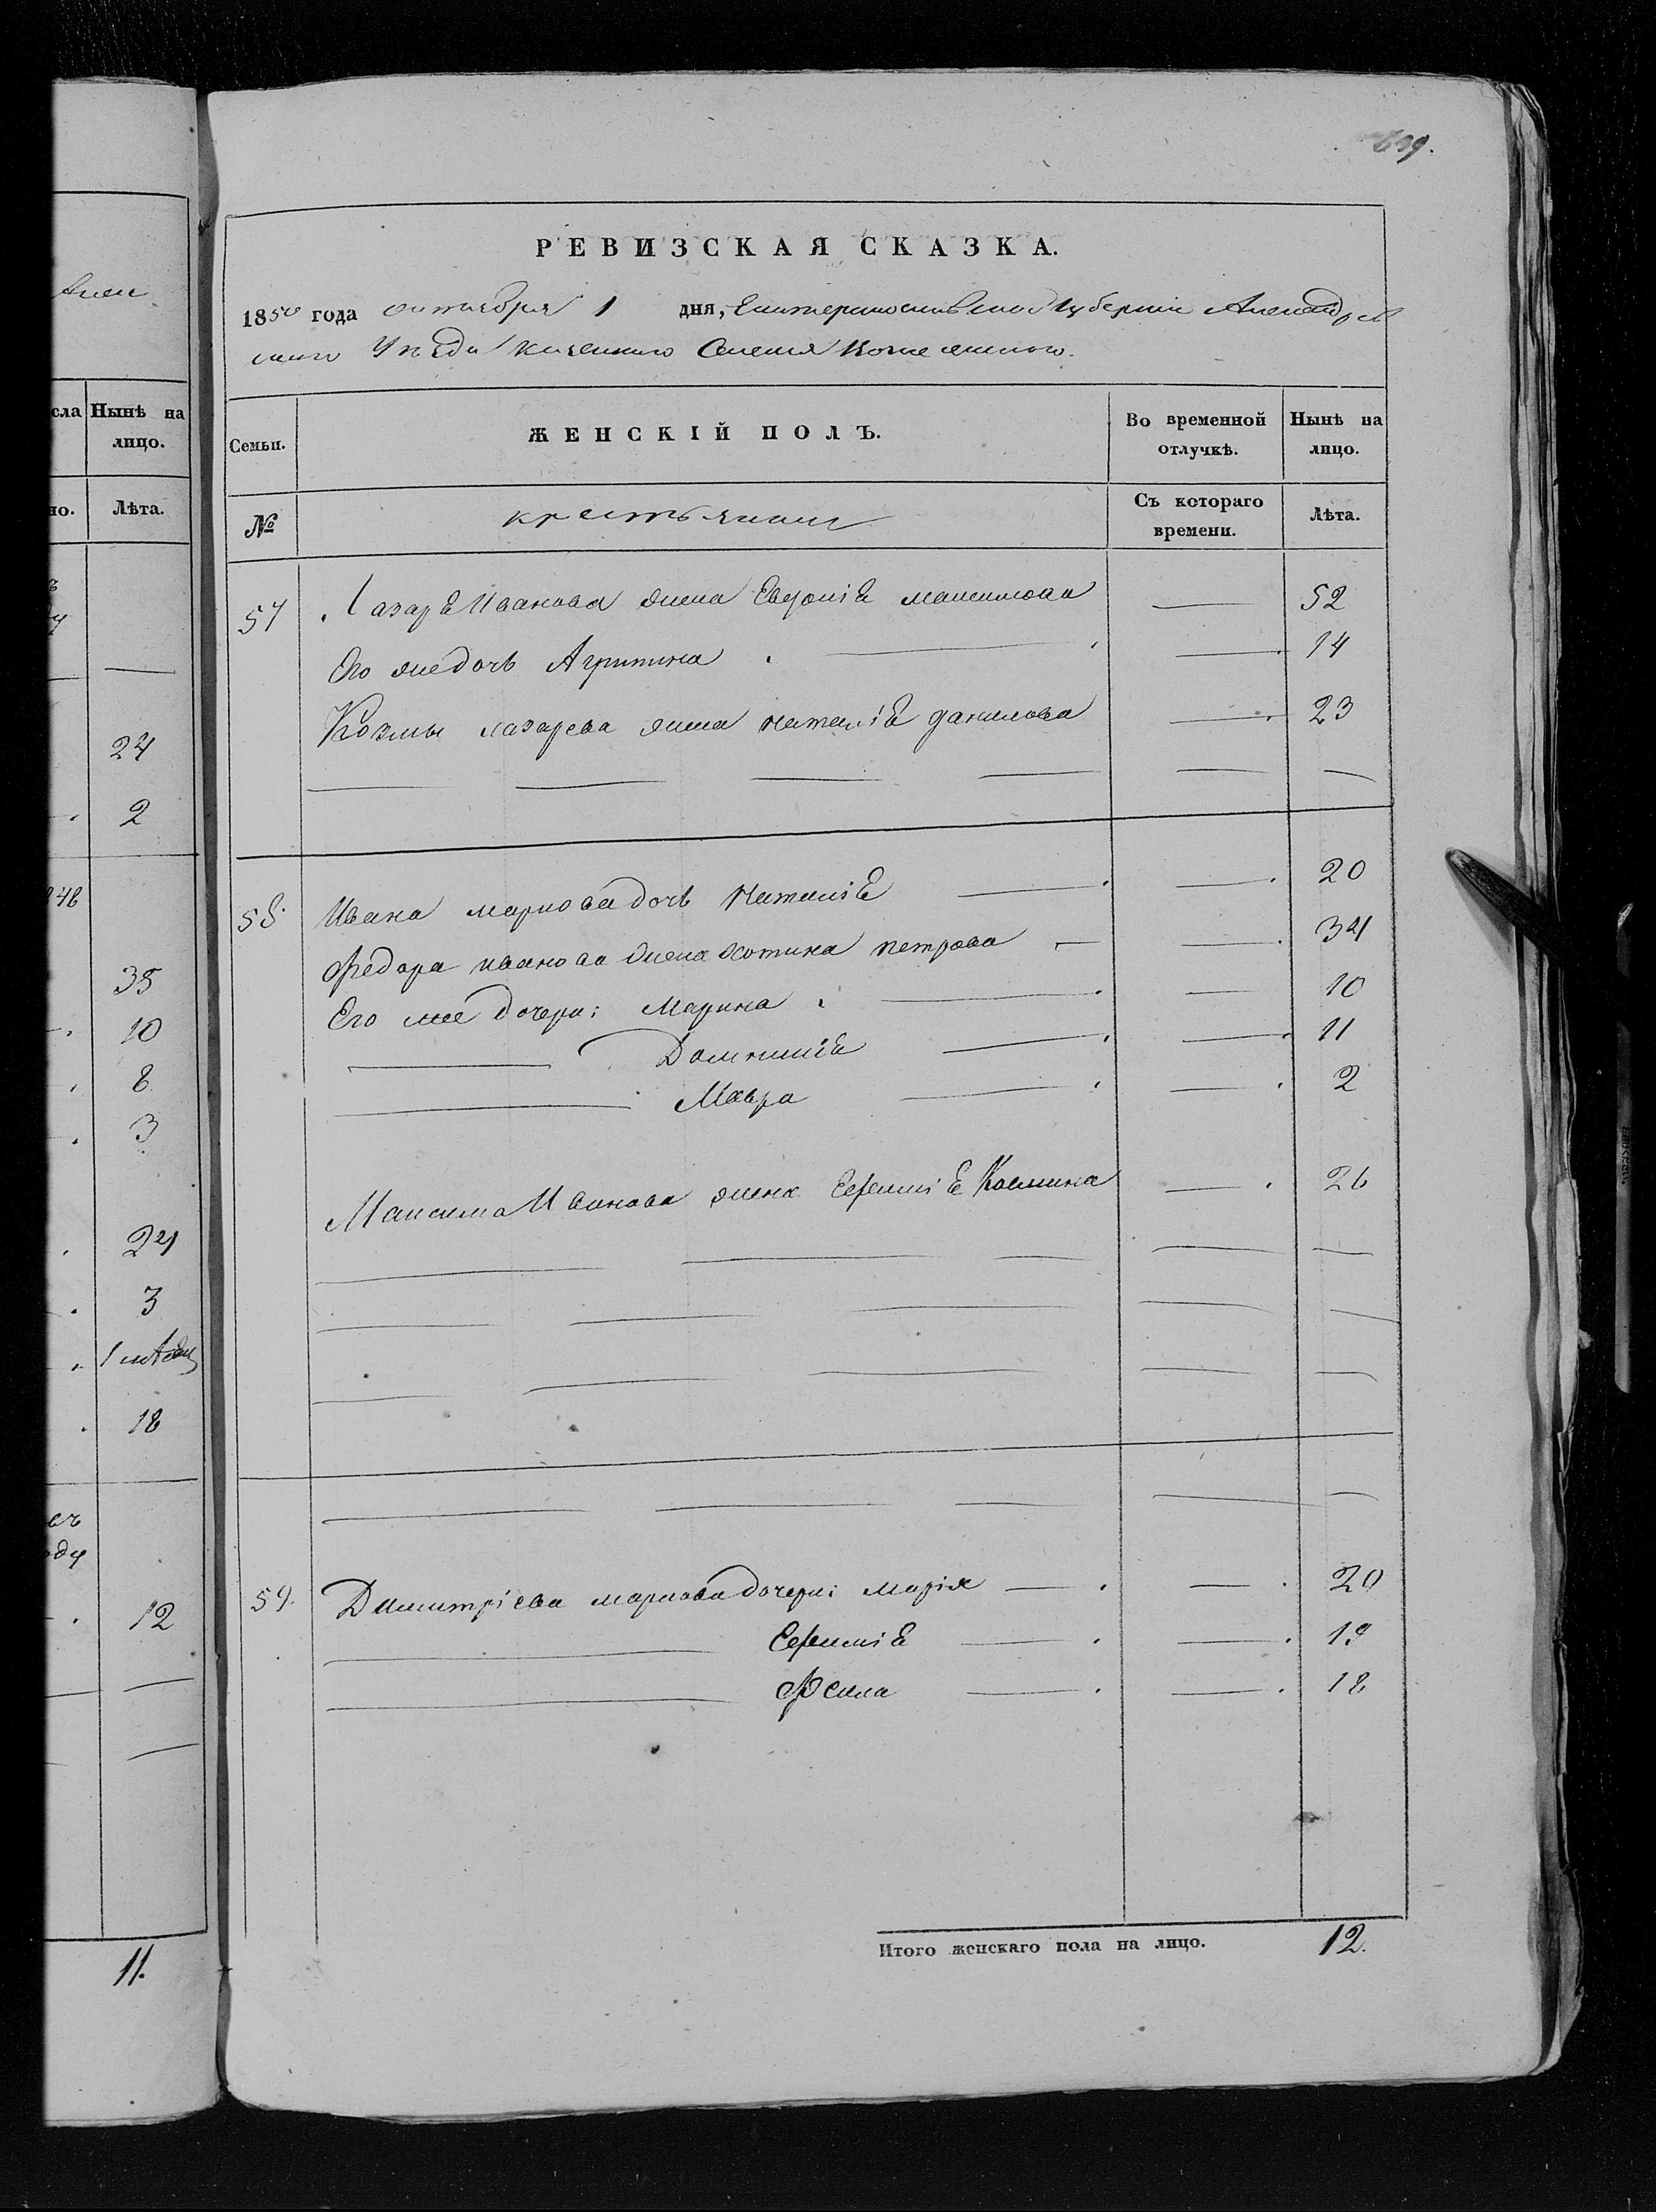 639.
РЕВИЗСКАЯ СКАЗКА.
1850 года октября 1 дня, Екатеринославской Губернии Александров
скаго Уезда казеннаго Селения
Семьи.
ЖЕНСКІЙ ПОЛЪ.
Во временной отлучкѣ.
Нынѣ на лицо.
№
крестьянки
Съ котораго времени.
Лѣта.
57 Лазаря Иванова жена Евдокія максимова — 52
Его же дочь Агрипина — — 14
Козмы лазарева жена наталія данилова — 23
58. Ивана маркова дочь Наталія — — 20
Федора иванова жена Фотина петрова — — 34
Его же дочери: Марина — — 10
— Домникія — — 11
— Мавра — — 2
Максима Иванова жена Ефимія Козмина — 26
59. Димитрієва маркова дочери: Марія — — 20
— Ефимія — — 19
— Фекла — — 18
Итого женскаго пола на лицо. 12.
сла
Нынѣ на лицо.
но.
Лѣта.
24
2
35
10
8
3
24
3
18
12
11.